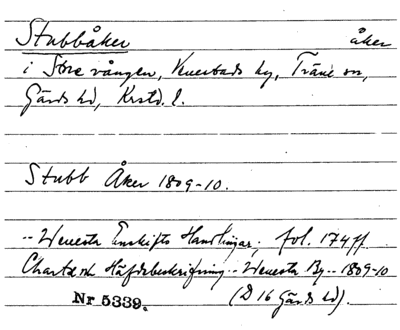 Stubbåker åker
i Store vången, Venestads by, Träne sn,
Gärds hd, Krstd. l.
Stubb Åker 1809-10.
-- Wenesta Enskifts Handlingar, fol. 174 ff.
Charta och Häfdebeskrifning -- Wenesta By -- 1809-10
Nr 5339. (D 16 Gärds hd).